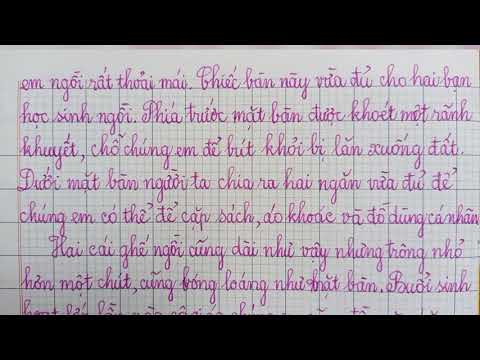 em ngồi rất thoải mái. Chiếc bàn này vừa đủ cho hai bạn
học sinh ngồi. Phía trước mặt bàn được khoét một rãnh
khuyết, chỗ chúng em để bút khỏi bị lăn xuống đất.
Dưới mặt bàn người ta chia ra hai ngăn vừa đủ để
chúng em có thể để cặp sách, áo khoác và đồ dùng cá nhân
Hai cái ghế ngồi cũng dài như vậy nhưng trông nhỏ
hơn một chút, cũng bóng loáng như mặt bàn. Buổi sinh